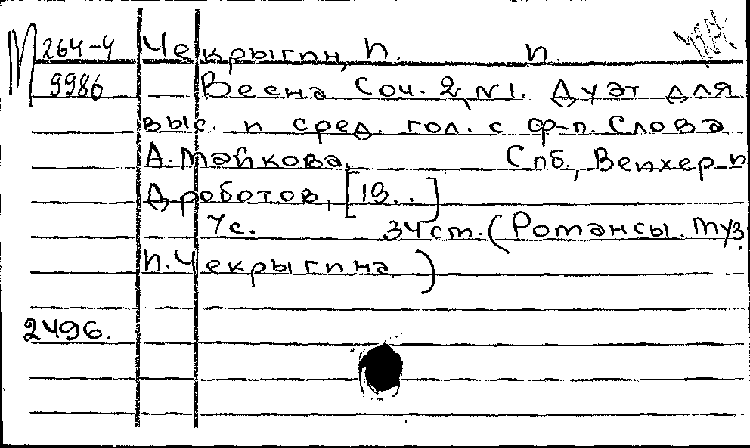 М 264-4 Чекрыгин, П. П
9986 Весна Соч. 2, №1. Дуэт для
выс. и сред. гол. с ф-п. Слова
А. Майкова. Спб., Веихер и
Дроботов, [19..]
7с. 34ст. (Романсы. Муз.
П. Чекрыгина)
2496.